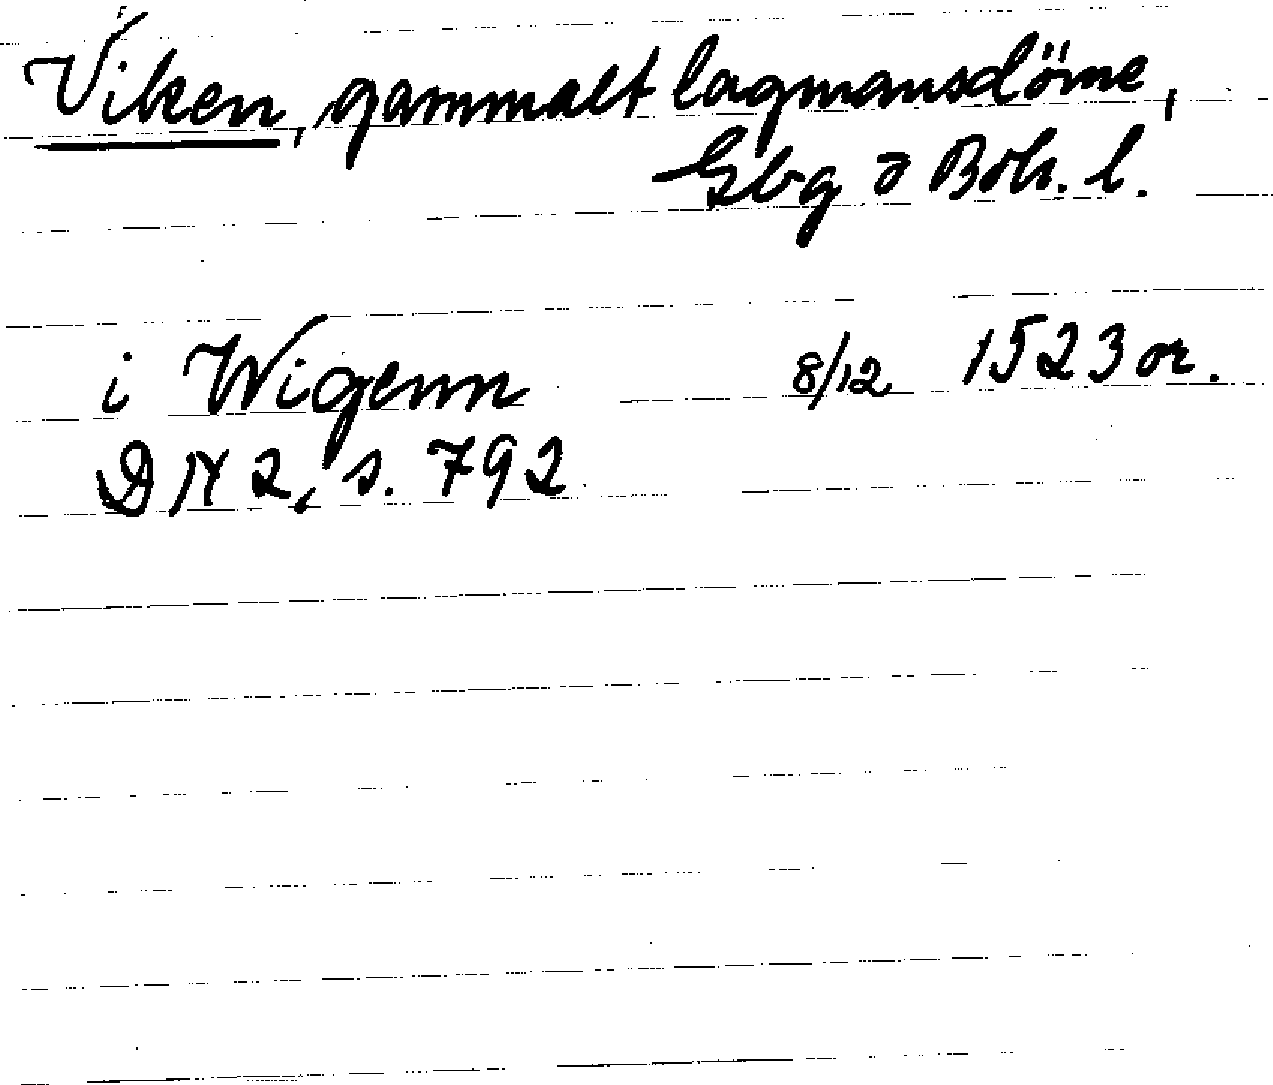 Viken, gammalt lagmansdöme,
Gbg o Boh. l.
i Wigenn 8/12 1523 or.
DN 2, s. 792